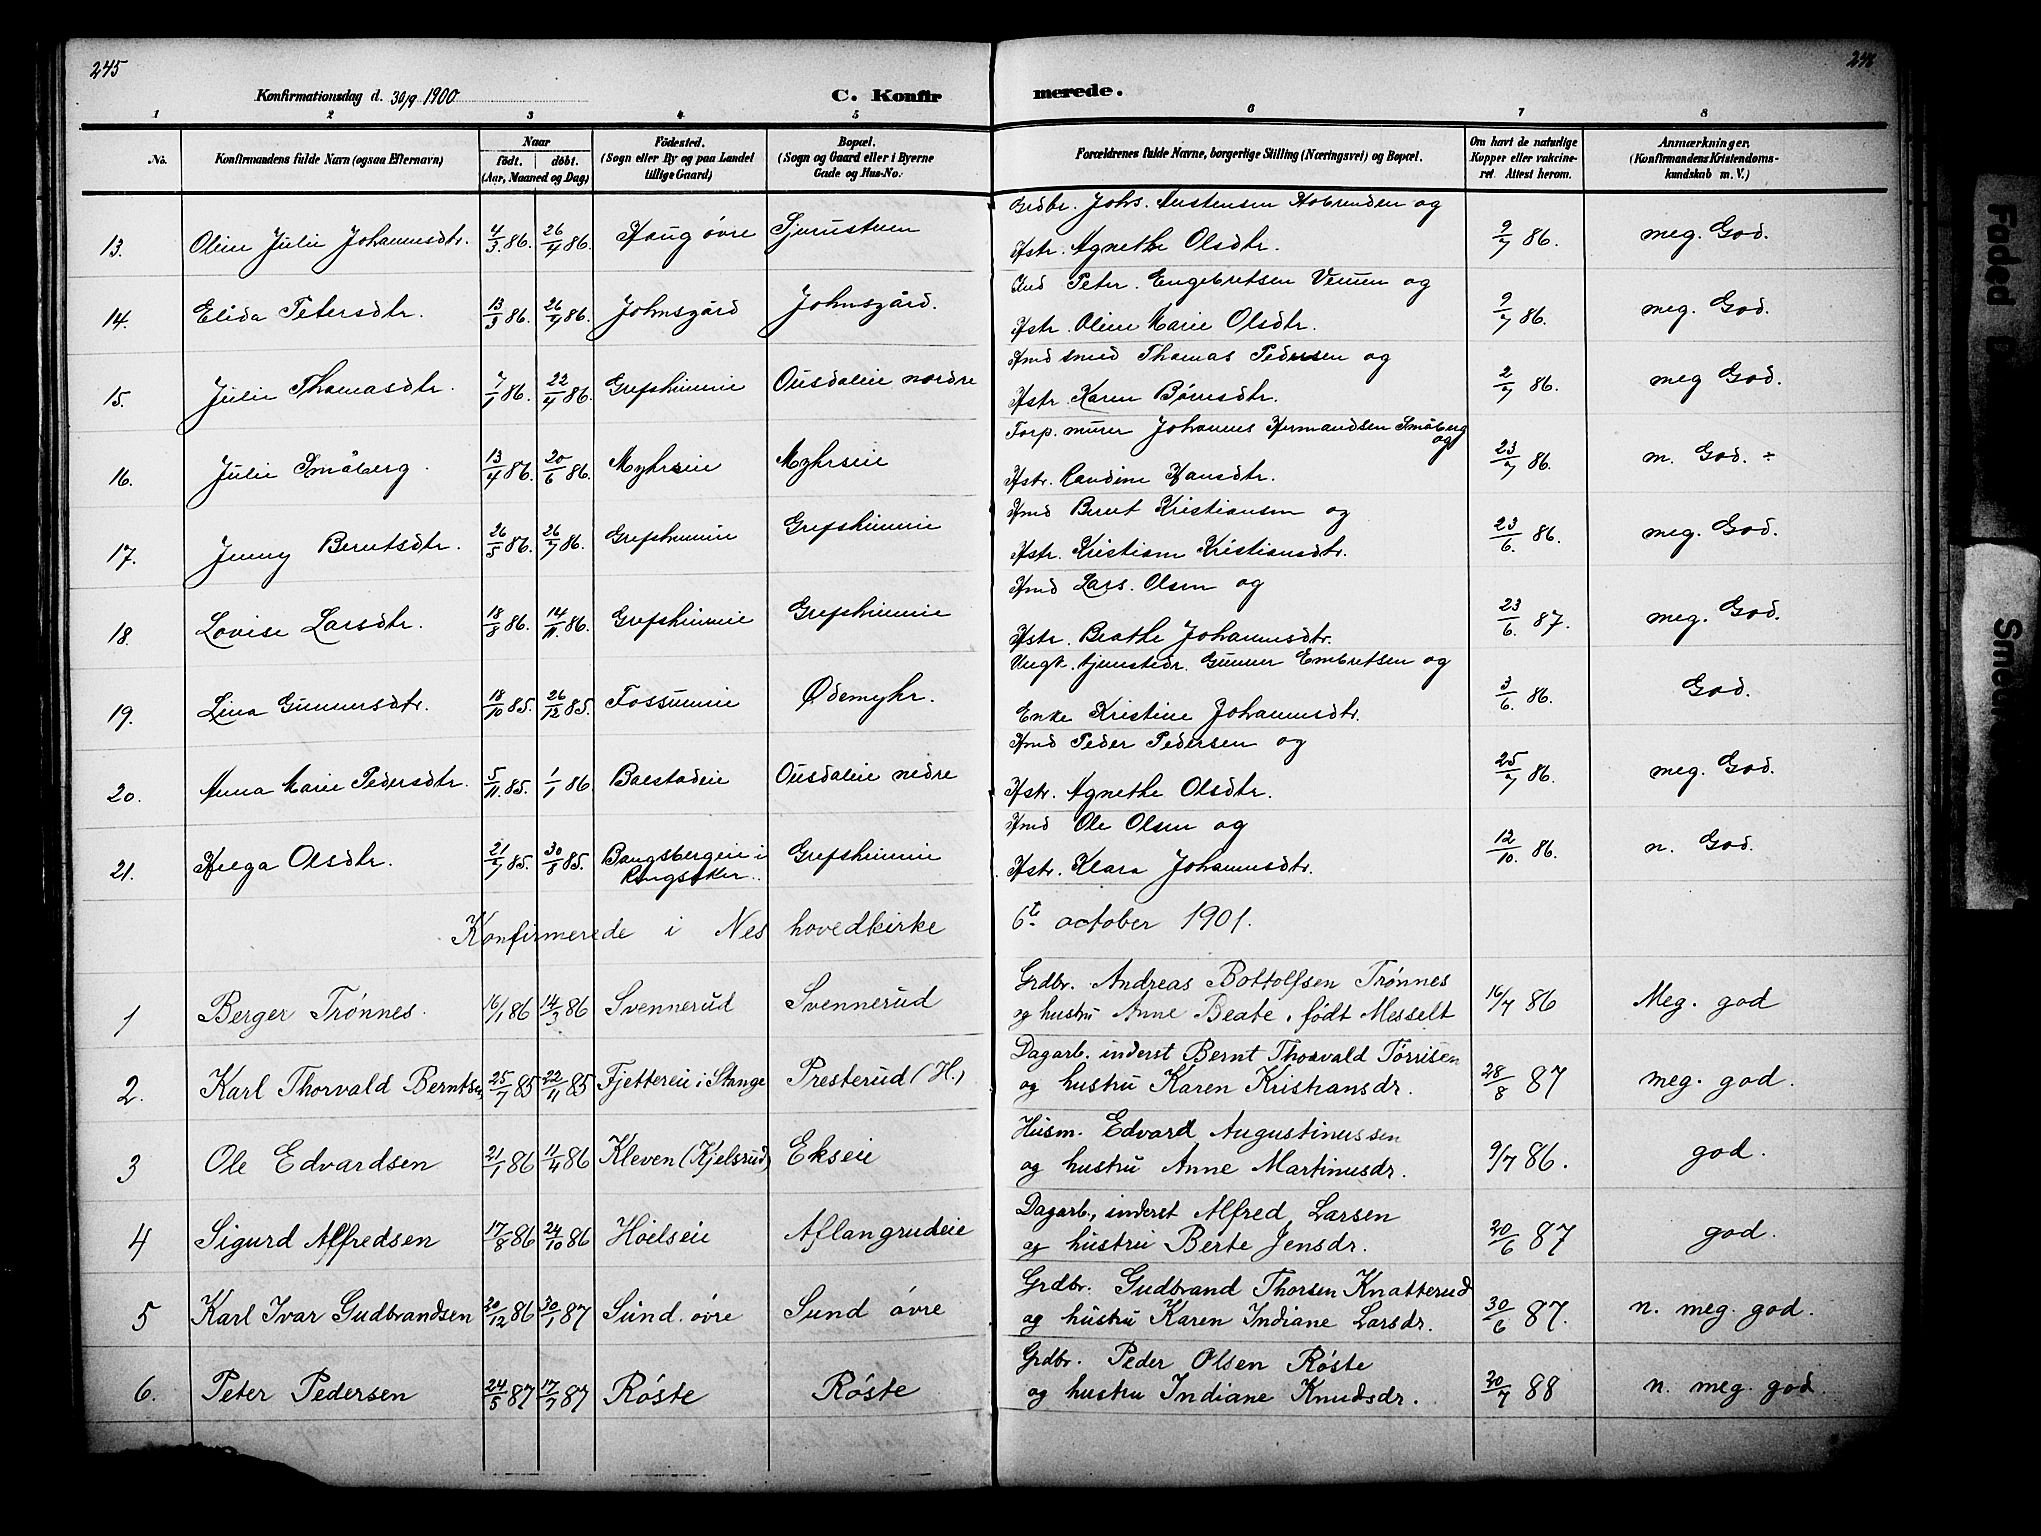 245
246
Konfirmationsdag d. 30/9 1900
C. Konfir
merede.
1 2 3 4 5 6 7 8
No. Konfirmandens fulde Navn (ogsaa Efternavn) Naar født. døbt. (Aar, Maaned og Dag) Fødested. (Sogn eller By og paa Landet tillige Gaard) Bopæl. (Sogn og Gaard eller i Byerne Gade og Hus-No. Forældrenes fulde Navne, borgerlige Stilling (Næringsvei) og Bopæl. Om havt de naturlige Kopper eller vakcineret. Attest herom. Anmærkninger. (Konfirmandens Kristendomskundskab m. V.)
Grdbr. Johs. Austensen Hobrenden og
13. Oline Julie Johannesdtr. 4/3 86. 26/4 86. Haug øvre Sjurustuen
Hstr. Agnethe Olsdtr. 9/7 86. meg. God.
Ind Peter Engebretsen Veuen og
14. Elida Petersdtr. 13/3 86. 26/4 86. Johnsgård Johnsgård.
Hstr. Oline Marie Olsdtr. 9/7 86. meg. God.
Hmd smed Thomas Pedersen og
15. Julie Thomasdtr. 7/1 86. 22/4 86. Grefsheimeie Ousdaleie nordre
Hstr. Karen Børresdtr. 2/7 86. meg God.
Torp. murer Johannes Hermandsen Småberg og
16. Julie Småberg. 13/4 86. 20/6 86. Myhrseie Myhrseie
Hstr. Candine Hansdtr. 23/7 86. m. God. ÷
Hmd Bernt Kristiansen og
17. Jenny Berntsdtr. 26/5 86. 26/7 86. Grefsheimeie Grefsheimeie
Hstr. Kristiane Kristiansdtr. 23/6. 86. meg. God.
Hmd Lars. Olsen og
18. Lovise Larsdtr. 18/8 86. 14/11 86. Grefsheimeie Grefsheimeie
Hstr. Beathe Johannesdtr. 23/6. 87. meg. God.
Ungk. tjenstedr. Gunner Embretsen og
19. Lina Gunnersdtr. 18/10 85. 26/12 85. Fossumeie Ødemyhr.
Enke Kristine Johannesdtr. 3/6. 86. God.
Hmd Peder Pedersen og
20. Anna Marie Pedersdtr. 5/11 85. 1/1 86. Balstadeie Ousdaleie nedre
Hstr. Agnethe Olsdtr. 25/7 86. meg. God.
Hmd Ole Olsen og
21. Helga Olsdtr. 21/7 85. 30/8 85. Bangsbergeie i Ringsaker. Grefsheimeie
Hstr. Klara Johannesdtr. 12/10. 86. n. God.
Konfirmerede i Nes hovedkirke 6te october 1901.
Grdbr. Andreas Bottolfsen Trønnes
1 Berger Trønnes. 16/1 86 14/3 86 Svennerud Svennerud
og hustru Anne Beate, født Messelt 16/7 86 Meg. god
Dagarb. inderst Bernt Thorvald Tørrisen
2. Karl Thorvald Berntsen 25/7 85 22/11 85 Fjettereie i Stange Presterud (H.)
og hustru Karen Kristiansdr. 28/8 87 meg. god.
Husm. Edvard Augustinussen
3 Ole Edvardsen 21/1 86 11/4 86 Kleven (Kjelsrud) Ekseie
og hustru Anne Martinusdr. 9/7 86. god.
Dagarb., inderst Alfred Larsen
4 Sigurd Alfredsen 17/8 86 24/10 86 Hoelseie Aflangrudeie
og hustru Berte Jensdr. 20/6 87 god.
Grdbr. Gudbrand Thorsen Knatterud
5 Karl Ivar Gudbrandsen 20/12 86 30/1 87 Sund. øvre Sund øvre
og hustru Karen Indiane Larsdr. 30/6 87. n. meg. god.
Grdbr. Peder Olsen Røste
6. Peter Pedersen 24/5 87 17/7 87 Røste Røste
og hustru Indiane Knudsdr. 20/7 88 n. meg. god.